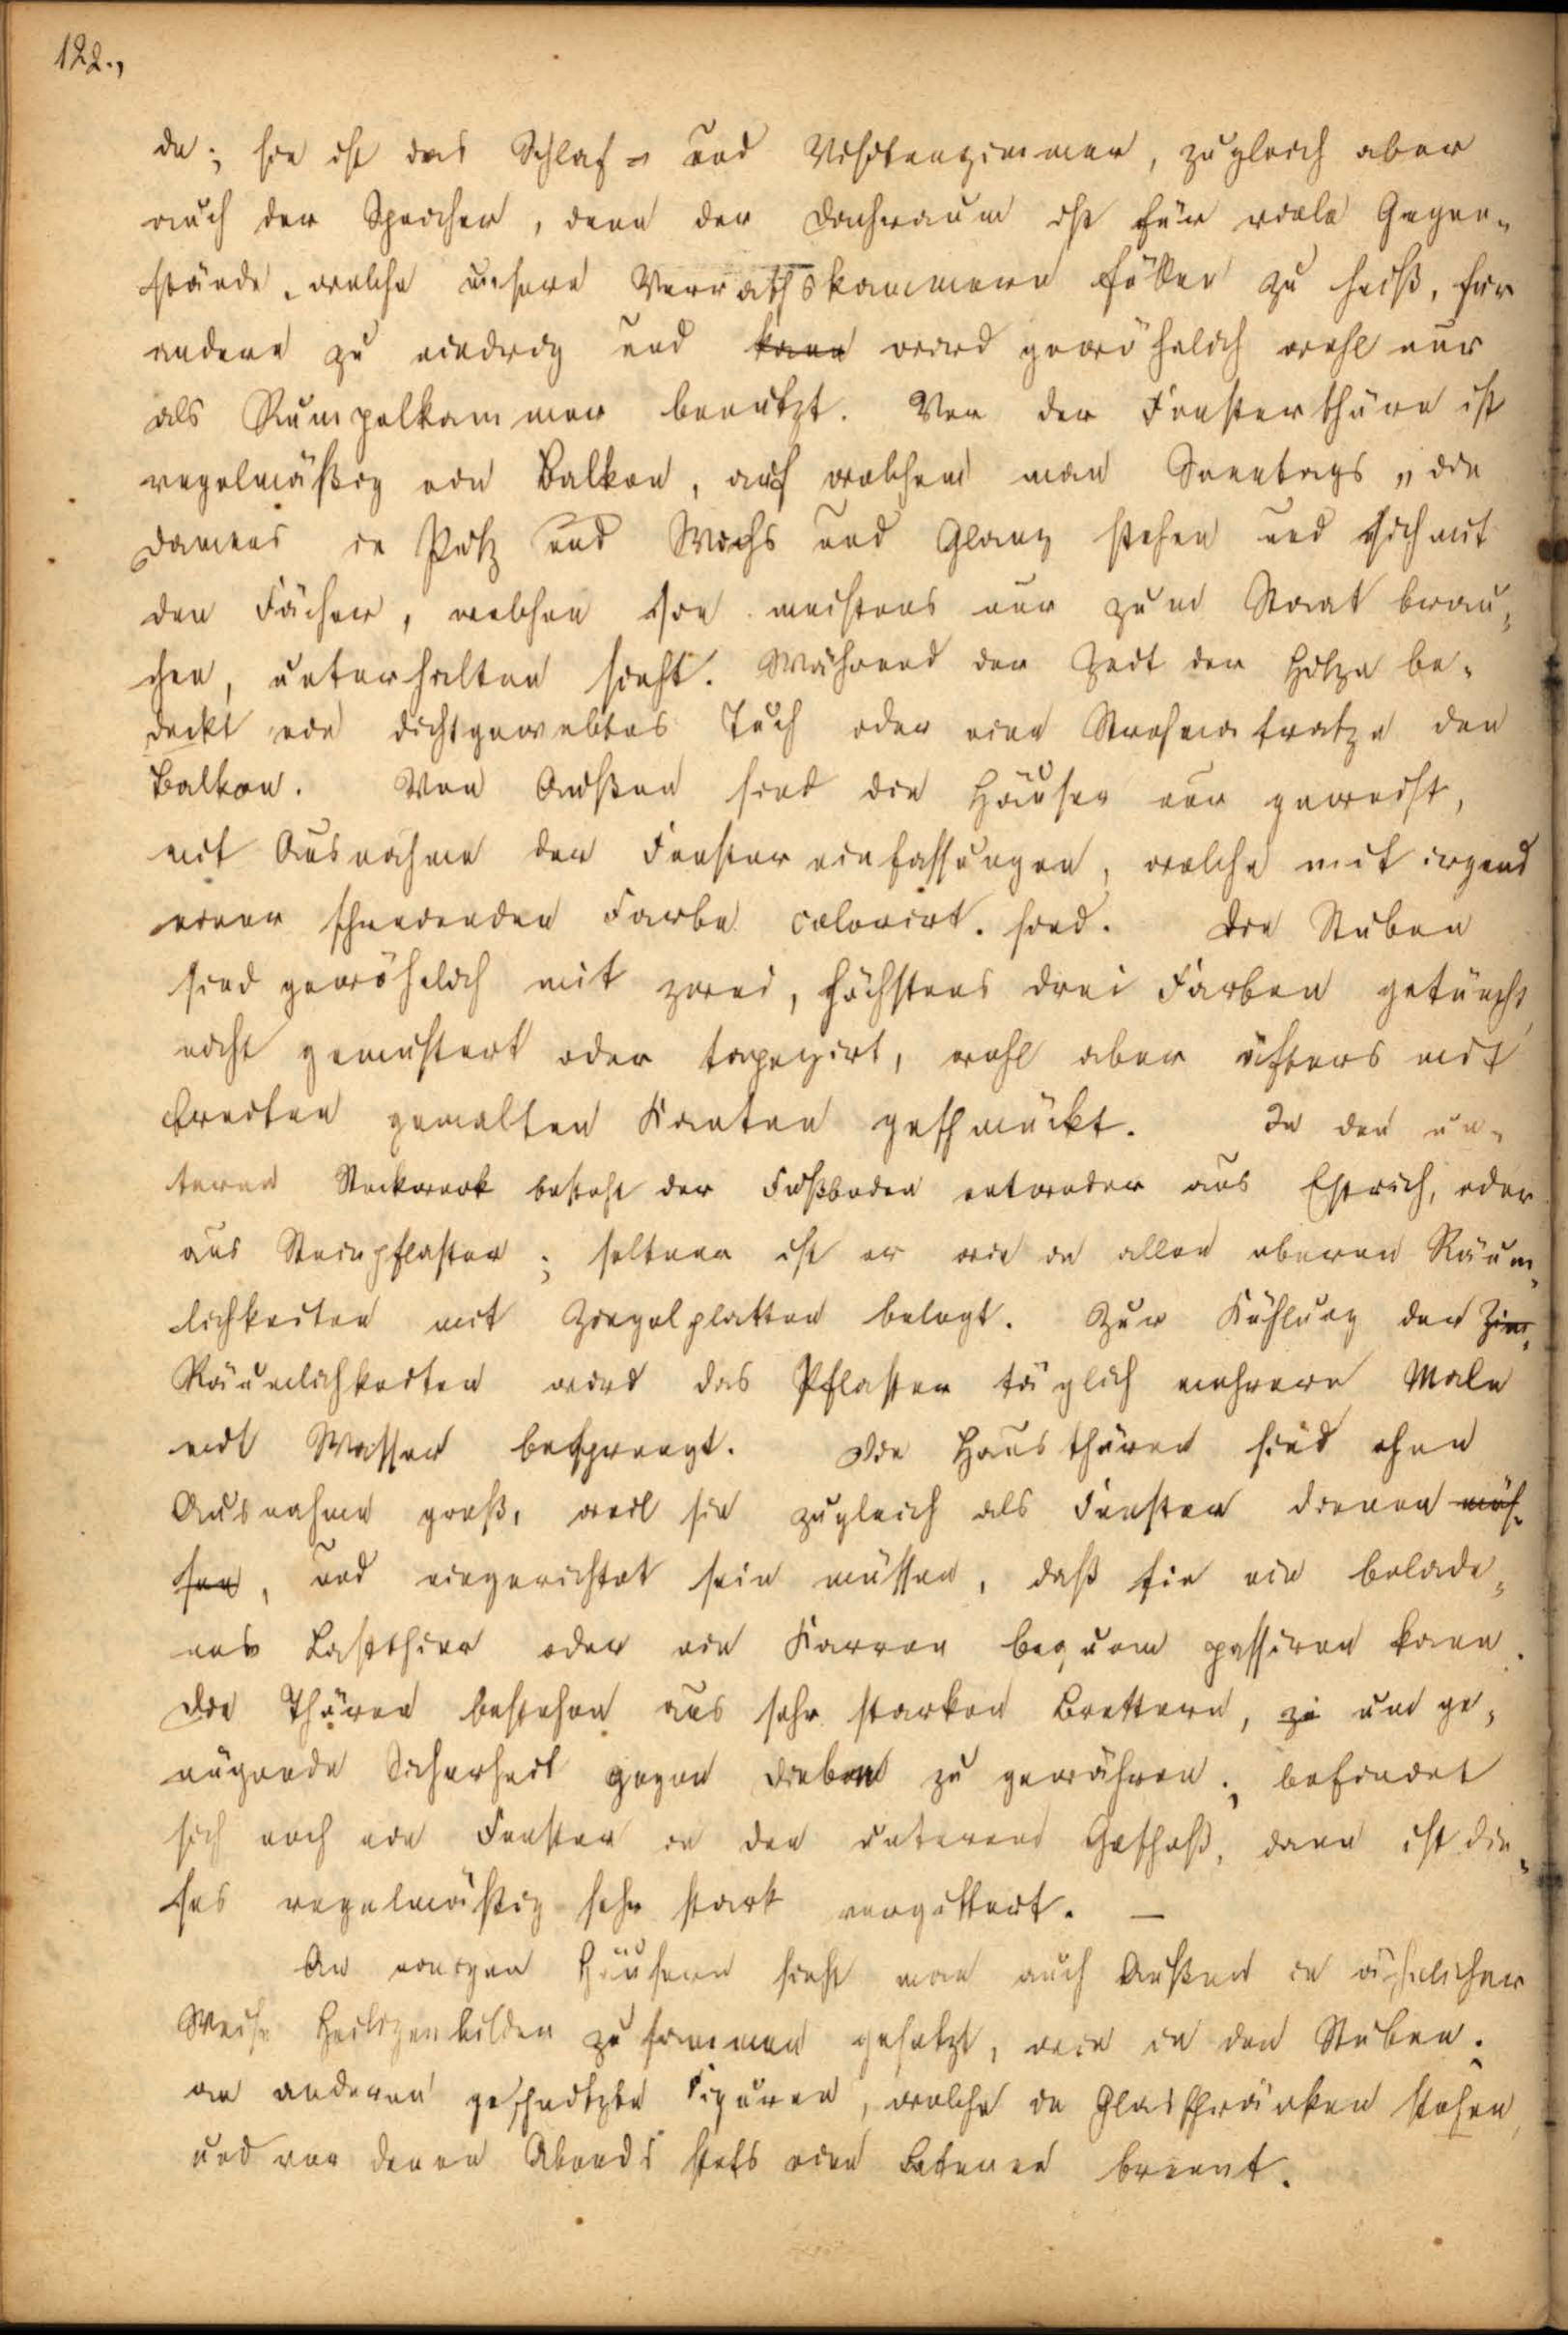 122.,
de; sie ist das Schlaf- und Visitenzimmer, zugleich aber
auch der Speicher, denn der Dachraum ist für viele Gegen-
stände, welche unsere Vorrathskammern füllen zu heiß, für
andere zu niedrig und kann wird gewöhnlich wohl nur
als Rumpelkammer benutzt. Vor der Fensterthüre ist
regelmäßig ein Balkon, auf welchem man Sonntags „die
Damens in Putz und Wichs und Glanz stehen und sich mit
den Fächer, welchen sie meistens nur zum Staat brau-
chen, unterhalten sieht. Während der Zeit der Hitze be-
deckt ein dichtgewebtes Tuch oder eine Strohmatratze den
Balkon. Von Außen sind die Häuser nur geweißt,
mit Ausnahme der Fenstereinfassungen, welche mit irgend
einer schreienden Farbe colorirt sind. Die Stuben
sind gewöhnlich mit zwei, höchstens drei Farben getüncht,
nicht gemustert oder tapezirt, wohl aber öfters mit
breiten gemalten Kanten geschmückt. In den un-
teren Stockwerk besteht der Fußboden entweder aus Estrich, oder
aus Steinpflaster; seltner ist er wie in allen oberen Räum-
lichkeiten mit Ziegelplatten belegt. Zur Kühlung der Zim-
Räumlichkeiten wird das Pflaster täglich mehrere Male
mit Wasser besprengt. Die Hausthüren sind ohne
Ausnahme groß, weil sie zugleich als Fenster dienen müs-
sen, und eingerichtet sein müssen, daß sie ein belade-
nes Lastthier oder ein Karren bequem passiren kann.
Die Thüren bestehen aus sehr starken Brettern, zu um ge-
nügende Sicherheit gegen Dieben zu gewähren; befindet
sich noch ein Fenster in den unteren Geschoß, dann ist die-
ses regelmäßig sehr stark vergittert. —
An einigen Häusern sieht man auch Außen in ähnlicher
Weise Heiligenbilder zusammen gesetzt, wie in den Stuben.
an anderen geschnitzte Figuren, welche in Glasschränken stehen,
und vor denen Abends stets eine Laterne brennt.